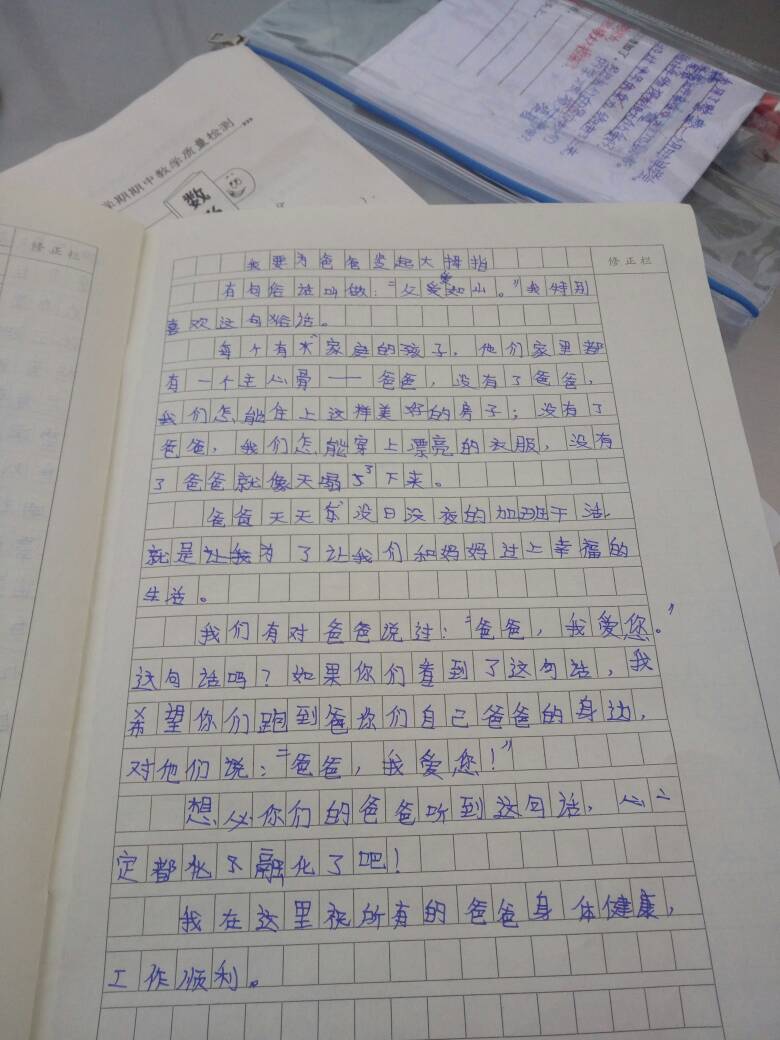 学期期中教学质量检测
数
修正栏
修正栏
我要为爸爸竖起大拇指
有句俗话叫做:“父爱如山。”我特别
喜欢这句俗话。
每个有家庭的孩子,他们家里都
有一个主心骨——爸爸,没有了爸爸,
我们怎能住上这样美好的房子;没有了
爸爸,我们怎能穿上漂亮的衣服,没有
了爸爸就像天塌了下来。
爸爸天天没日没夜的加班干活,
就是为了让我们和妈妈过上幸福的
生活。
我们有对爸爸说过:“爸爸,我爱您。”
这句话吗?如果你们看到了这句话,我
希望你们跑到你们自己爸爸的身边,
对他们说:“爸爸,我爱您!”
想必你们的爸爸听到这句话,心一
定都融化了吧!
我在这里祝所有的爸爸身体健康,
工作顺利。